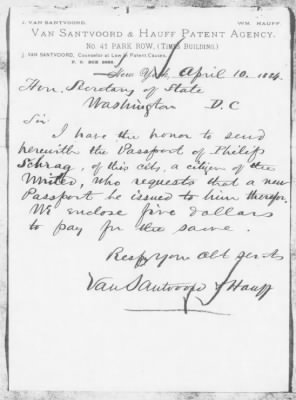 J. VAN SANTVOORD. WM. HAUFF
VAN SANTVOORD & HAUFF PATENT AGENCY.
No. 41 PARK ROW, (TIMES BUILDING)
J. VAN SANTVOORD, Counselor at Law in Patent Causes.
P. O. BOX
New York, April 10. 1884.
Hon. Secretary of State
Washington D.C
Sir
I have the honor to send
herewith the Passport of Philip
Schrag, of this city, a citizen of the
United, who requests that a new
Passport be issued to him therefor.
We enclose five dollars
to pay for the same.
Respy your obt servts
Van Santvoord & Hauff